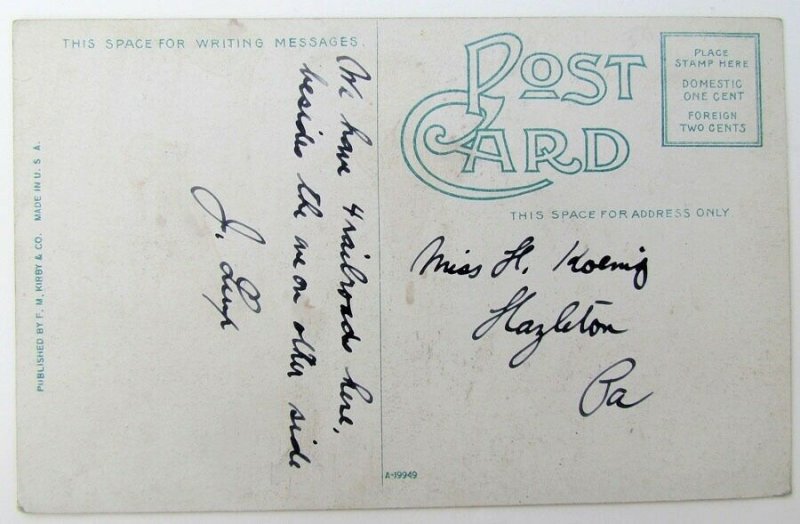 THIS SPACE FOR WRITING MESSAGES.
We have 4 railroads here,
besides the one on other side
J.
POST
CARD
PLACE
STAMP HERE
DOMESTIC
ONE CENT
FOREIGN
TWO CENTS
THIS SPACE FOR ADDRESS ONLY
Miss H. Koenig
Hazleton
Pa
PUBLISHED BY F. M. KIRBY & CO. MADE IN U. S. A.
A-19949